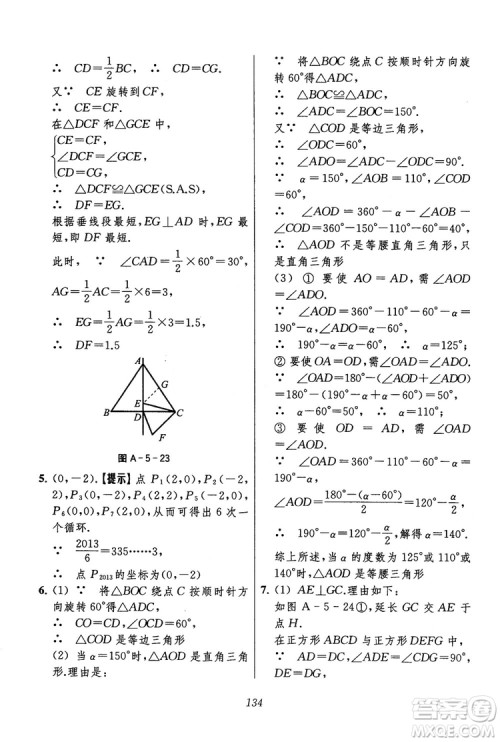 ∴ CD=1/2BC, ∴ CD=CG.
又∵ CE 旋转到 CF,
∴ CE=CF.
在△DCF 和△GCE 中,
{CE=CF,
∠DCF=∠GCE,
CD=CG,
∴ △DCF≌△GCE(S.A.S)
∴ DF=EG.
根据垂线段最短,EG⊥AD 时,EG 最短,即 DF 最短.
此时, ∵ ∠CAD=1/2×60°=30°,
AG=1/2AC=1/2×6=3,
∴ EG=1/2AG=1/2×3=1.5,
∴ DF=1.5
A
G
E
B
D
C
F
图 A-5-23
5. (0,-2).【提示】点 P₁(2,0), P₂(-2,
2), P₃(0,-2), P₄(2,2), P₅(-2,0),
P₆(0,0), P₇(2,0),从而可得出 6 次一
个循环.
∵ 2013/6=335……3,
∴ 点 P₂₀₁₃的坐标为(0,-2)
6. (1) ∵ 将△BOC 绕点 C 按顺时针方向
旋转 60°得△ADC,
∴ CO=CD,∠OCD=60°,
∴ △COD 是等边三角形
(2) 当 α=150°时,△AOD 是直角三角
形.理由是:
∵ 将△BOC 绕点 C 按顺时针方向旋
转 60°得△ADC,
∴ △BOC≌△ADC,
∴ ∠ADC=∠BOC=150°.
又∵ △COD 是等边三角形,
∴ ∠ODC=60°,
∴ ∠ADO=∠ADC-∠ODC=90°.
∵ α=150°,∠AOB=110°,∠COD=
60°,
∴ ∠AOD=360°-α-∠AOB-
∠COD=360°-150°-110°-60°=40°,
∴ △AOD 不是等腰直角三角形,即
△AOD 是直角三角形
(3) ① 要使 AO=AD,需∠AOD=
∠ADO.
∵ ∠AOD=360°-110°-60°-α=
190°-α,∠ADO=α-60°,
∴ 190°-α=α-60°,∴ α=125°;
② 要使 OA=OD,需∠OAD=∠ADO.
∵ ∠OAD=180°-(∠AOD+∠ADO)=
180°-(190°-α+α-60°)=50°,
∴ α-60°=50°,∴ α=110°;
③ 要使 OD=AD,需∠OAD=∠AOD.
∵ ∠AOD=360°-110°-60°-α=
190°-α,
∠OAD=(180°-(α-60°))/2=120°-α/2,
∴ 190°-α=120°-α/2,解得 α=140°.
综上所述,当 α 的度数为 125°或 110°
或 140°时,△AOD 是等腰三角形
7. (1) AE⊥GC.理由如下:
如图 A-5-24①,延长 GC 交 AE 于
点 H.
在正方形 ABCD 与正方形 DEFG 中,
AD=DC,∠ADE=∠CDG=90°,
DE=DG,
134